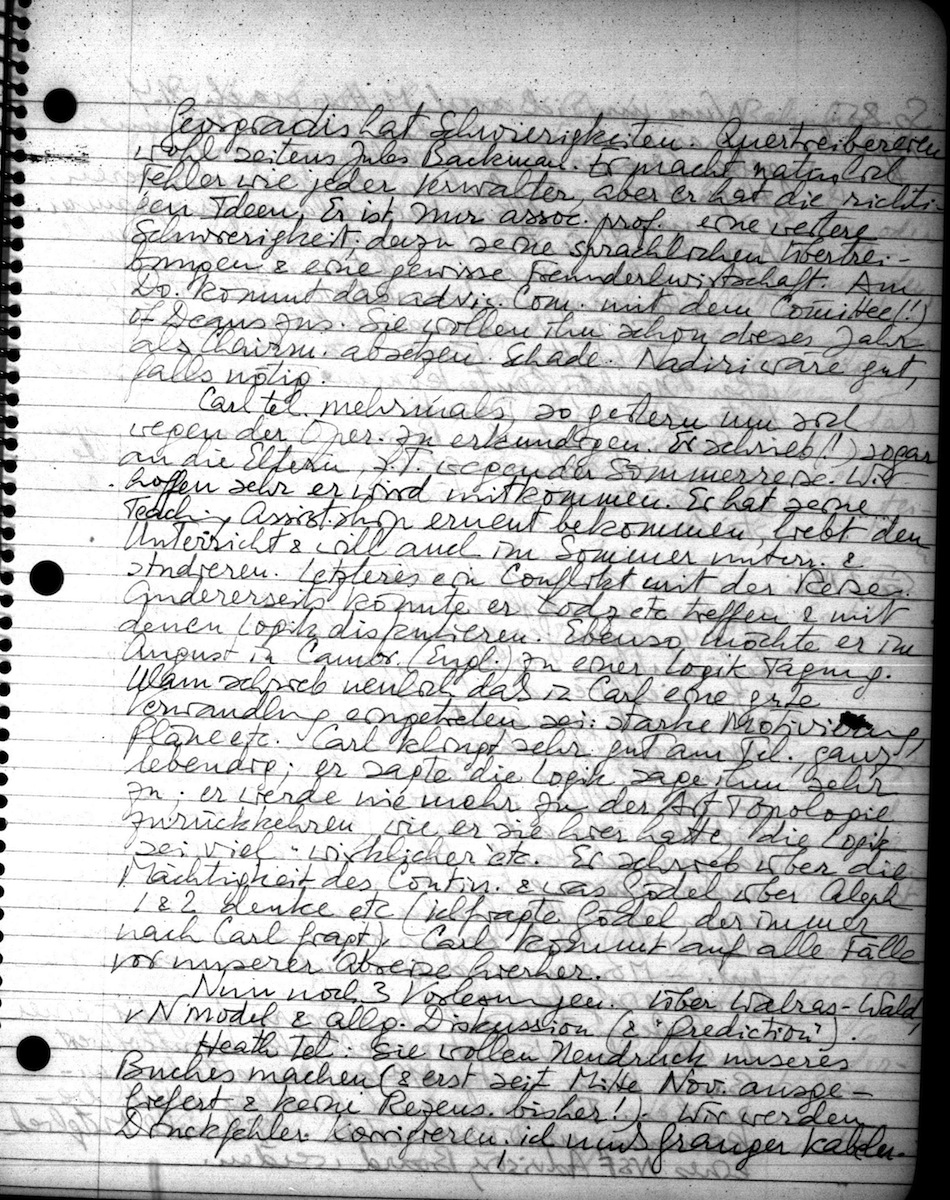 Georgradis hat Schwierigkeiten. Quertreibereien
wohl seitens Jules Backman. Er macht natürlich
Fehler wie jeder Verwalter, aber er hat die richti-
gen Ideen. Er ist nur assoc. prof. eine weitere
Schwierigkeit. dazu seine sprachlichen Übertrei-
bungen & eine gewisse Freunderlwirtschaft. Am
Do. kommt das advis. Com. mit dem Comittee(!!)
of Deans zus. Sie wollen ihn schon dieses Jahr
als Chairm. absetzen. Schade. Nadiri wäre gut,
falls nötig.
Carl tel. mehrmals, so gestern um sich
wegen der Oper. zu erkundigen. Er schrieb(!) sogar
an die Eltern, z.T. wegen der Sommerreise. Wir
hoffen sehr er wird mitkommen. Er hat seine
Teaching Assist.ship erneut bekommen, liebt den
Unterricht & will auch im Sommer unterr. &
studieren. Letzteres ein Conflikt mit der Reise.
Andererseits könnte er Lodz etc treffen & mit
denen Logik diskutieren. Ebenso möchte er im
August in Cambr. (Engl.) zu einer Logik Tagung.
Ulam schrieb neulich, dass in Carl eine gute
Verwandlung eingetreten sei: starke Motivierung,
Pläne etc. Carl klingt sehr gut am Tel., ganz
lebendig; er sagte die Logik sage ihm sehr
zu; er werde nie mehr zu der Art Topologie
zurückkehren wie er sie hier hatte, die Logik
sei viel "wirklicher" etc. Er schrieb über die
Mächtigkeit des Contin. & was Gödel über Aleph
1 & 2 denke etc (ich fragte Gödel der immer
nach Carl fragt). Carl kommt auf alle Fälle
vor unserer Abreise hierher.
Nun noch 3 Vorlesungen. Über Walras-Wald,
vN model & allg. Diskussion (& "Prediction").
Heath tel: Sie wollen Neudruck unseres
Buches machen (& erst seit Mitte Nov. ausge-
liefert & keine Rezens. bisher!). Wir werden
Druckfehler korrigieren. ich muss Granger kabeln.